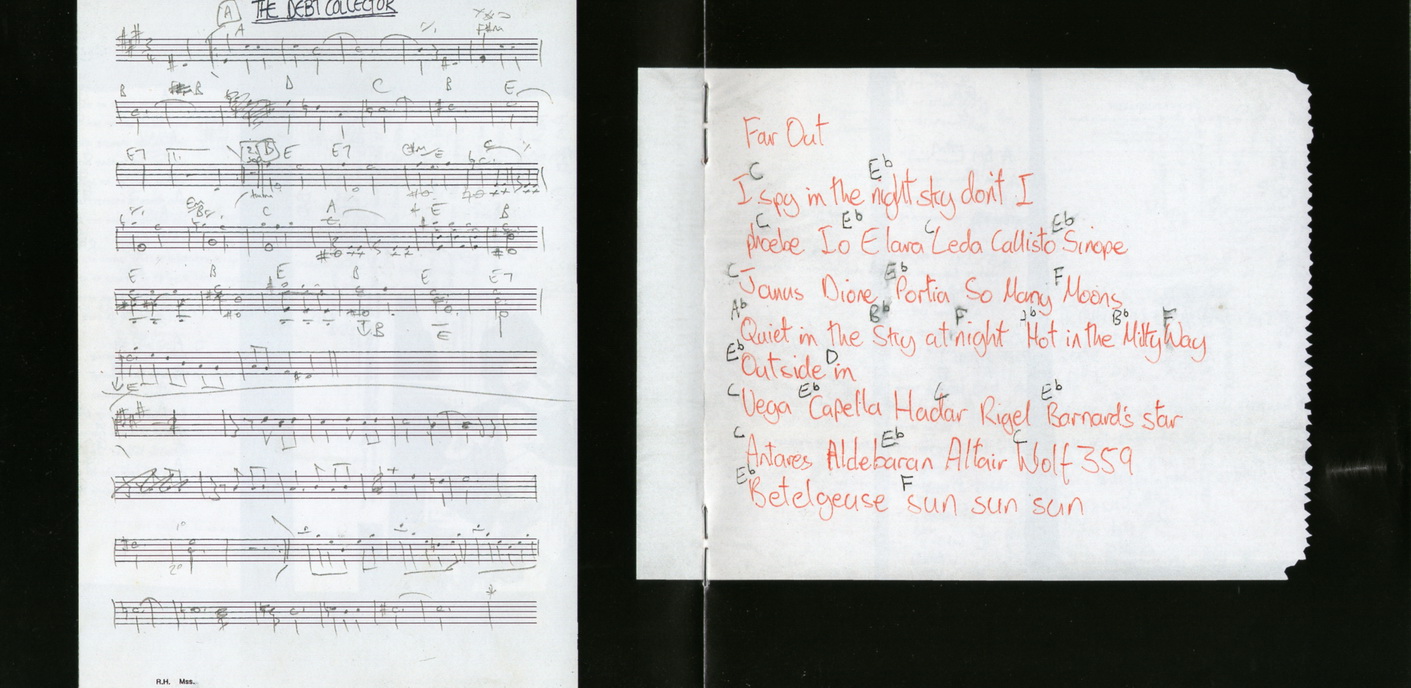 A THE DEBT COLLECTOR
A F#m
B B D C B E
E7 1. 2. B E E7 C
C A E B
E B E B E E7
B E
E
1º
2º
R.H. Mss.
Far Out
C Eb
I spy in the night sky don't I
C Eb C Eb
phoebe Io Elara Leda Callisto Sinope
C Eb F
Janus Dione Portia So Many Moons
Ab Bb F Bb F
Quiet in the Sky at night Hot in the Milky Way
Eb D
Outside in
C Eb C Eb
Vega Capella Hadar Rigel Barnard's star
C Eb C
Antares Aldebaran Altair Wolf 359
Eb F
Betelgeuse sun sun sun